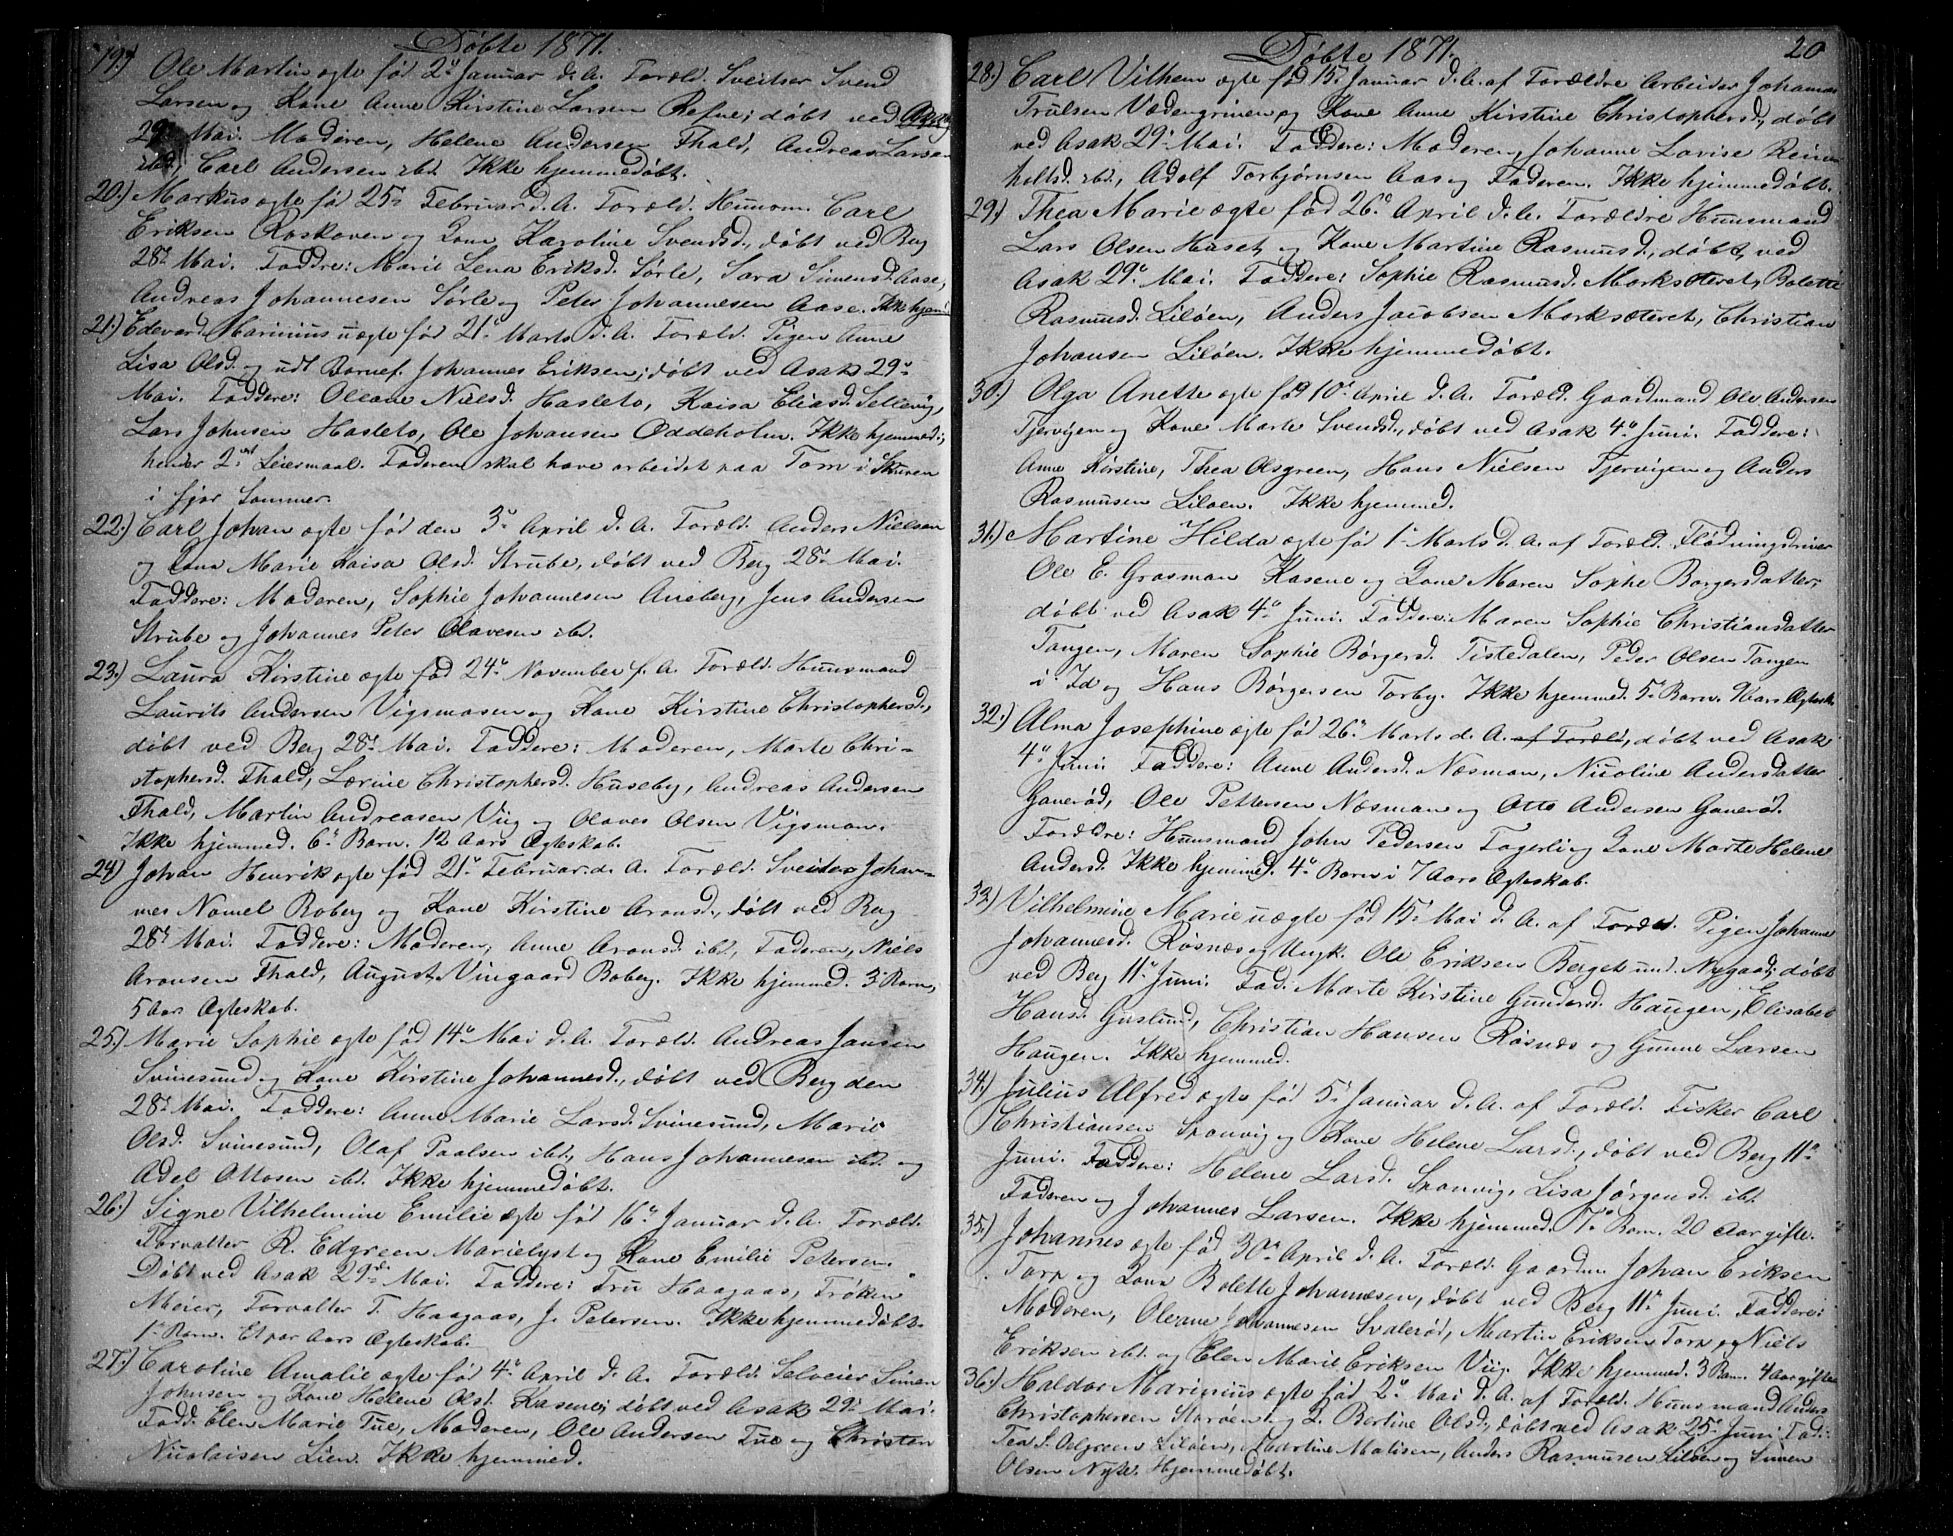 Døbte 1871.
19.) Ole Martin ægte fød 2den Januar d. A. Foræld. Sveitser Svend
Larsen og Kone Anne Kirstine Larsen Refne; døbt ved Asak
29de Mai. Moderen, Helene Andersen Thald, Andreas Larsen
ibd, Carl Andersen ibd. Ikke hjemmedøbt.
20.) Markus ægte fød 25de Februar d. A. Foræld. Huusm. Carl
Eriksen Raskoven og Kone Karoline Svendsd., døbt ved Berg
28de Mai. Faddre: Marie Lena Eriksd. Sørle, Sara Simensd. Aase,
Andreas Johannesen Sørle og Peter Johannesen Aase. Ikke hjem:
21.) Edvard Marinius uægte fød 21de Marts d. A. Foræld. Pigen Anne
Lisa Olsd. og udl. Barnef. Johannes Eriksen; døbt ved Asak 29de
Mai. Faddere: Oleane Nielsd. Hasleto, Kaisa Eliasd. Sellevig,
Lars Johnsen Hasleto, Ole Johansen Oddeholm. Ikke hjemmed.;
hendes 2det Leiermaal. Faderen skal have arbeidet paa Tom i Skuren
i fjor Sommer.
22.) Carl Johan ægte fød den 3de April d. A. Foræld. Anders Nielsen
og Kone Marie Kaisa Olsd. Strube, døbt ved Berg 28de Mai.
Faddere: Moderen, Sophie Johannesen Aneberg, Jens Andersen
Strube og Johannes Peter Olavesen ibd.
23.) Laura Kirstine ægte fød 24de November f. A. Foræld. Huusmand
Laurits Andersen Vigsmosen og Kone Kirstine Christophersd.,
døbt ved Berg 28de Mai. Faddere: Moderen, Marte Chri-
stophersd. Thald, Lærine Christophersd. Huseby, Andreas Andersen
Thald, Martin Andreasen Viig og Olaves Olsen Vigsmosen.
Ikke hjemmed. 6te Barn. 12 Aars Ægteskab.
24.) Johan Henrik ægte fød 21de Februar d. A. Foræld. Sveitser Johan-
nes Namel Roberg og Kone Kirstine Aronsd., døbt ved Berg
28de Mai. Faddere: Moderen, Anne Aronsd. ibd, Faderen, Niels
Aronsen Thald, August Viingaard Roberg. Ikke hjemmed. 3 Barn,
5 Aars Ægteskab.
25.) Marie Sophie ægte fød 14de Mai d. A. Foræld. Andreas Jansen
Svinesund og Kone Kirstine Johannesd., døbt ved Berg den
28de Mai. Faddere: Anne Marie Larsd. Svinesund, Marie
Olsd. Svinesund, Olaf Paalsen ibd., Hans Johannesen ibd. og
Adel Ottosen ibd. Ikke hjemmedøbt.
26.) Signe Vilhelmine Emilie ægte fød 16de Januar d. A. Foræld.
Forvalter R. Edgreen Marielyst og Kone Emilie Petersen.
Døbt ved Asak 29de Mai. Faddere: Fru Haagaas, Frøken
Meier, Forvalter T. Haagaas, J. Petersen. Ikke hjemmedøbt.
1ste Barn. Et par Aars Ægteskab.
27.) Caroline Amalie ægte fød 4de April d. A. Foræld. Selveier Simen
Johnsen og Kone Helene Olsd. Kasene; døbt ved Asak 29de Mai.
Fadd. Elen Marie Tue, Moderen, Ole Andersen Tue og Christen
Nicolaisen Lien. Ikke hjemmed.
Døbte 1871.
20
28.) Carl Vilhem ægte fød 15de Januar d. A. af Forældre Arbeider Johannes
Trulsen Vadengrinen og Kone Anne Kirstine Christophersd., døbt
ved Asak 29de Mai. Faddere: Moderen, Johanne Lovise Reinn
holtsd. ibd, Adolf Torbjørnsen Aas og Faderen. Ikke hjemmedøbt.
29.) Thea Marie ægte fød 26de April d. A. Forældre Huusmand
Lars Olsen Huset og Kone Martine Rasmusd., døbt ved
Asak 29de Mai. Faddere: Sophie Rasmusd. Marksæteret, Bolette
Rasmusd. Liløen, Anders Jacobsen Marksæteret, Christian
Johansen Liløen. Ikke hjemmedøbt.
30.) Olga Anette ægte fød 10de April d. A. Foræld. Gaardmand Ole Andersen
Tjervigen og Kone Marte Svendsd., døbt ved Asak 4de Juni. Faddere:
Anne Kirstine, Thea Olsgreen, Hans Nielsen Tjervigen og Anders
Rasmusen Liløen. Ikke hjemmed.
31.) Martine Hilda ægte fød 1ste Marts d. A. af Foræld. Flødningsdriver
Ole E. Grasman Kasene og Kone Maren Sophe Borgersdatter,
døbt ved Asak 4de Juni. Faddere: Maren Sophie Christiansdatter
Tangen, Maren Sophie Børgersd. Tistedalen, Peder Olsen Tangen
i Id og Hans Børgersen Torby. Ikke hjemmed. 5te Barn. 9 Aars Ægtesk.
32.) Alma Josephine ægte fød 26de Marts d. A. af Foræld., døbt ved Asak
4de Juni. Faddere: Anne Andersd. Næsman, Nicoline Andersdatter
Ganerød, Ole Pettersen Næsman og Otto Andersen Ganerød.
Forældre: Huusmand John Pedersen Fagerli og Kone Marte Helene
Andersd. Ikke hjemmed. 4de Barn i 7 Aars Ægteskab.
33.) Vilhelmine Marie uægte fød 15de Mai d. A. af Foræld. Pigen Johanne
Johannesd. Røsnæs og Ungk. Ole Eriksen Berget und. Nygaard; døbt
ved Berg 11te Juni. Fad. Marte Kirstine Gundersd. Haugen, Elisabet
Hansd. Guslund, Christian Hansen Røsnæs og Gunne Larsen
Haugen. Ikke hjemmed.
34.) Julius Alfred ægte fød 5te Januar d. A. af Foræld. Fisker Carl
Christiansen Sponvig og Kone Helene Larsd., døbt ved Berg 11te
Juni. Faddere: Helene Larsd. Sponvig, Lisa Jørgensd. ibd.
Faderen og Johannes Larsen. Ikke hjemmed. 7de Barn. 20 Aar gifte.
35.) Johannes ægte fød 30de April d. A. Foræld. Gaardm. Johan Eriksen
Torp og Kone Bolette Johannesen, døbt ved Berg 11te Juni. Faddere:
Moderen, Oleane Johannesen Svalerød, Martin Eriksen Torp og Niels
Eriksen ibd. og Elen Marie Eriksen Viig. Ikke hjemmed. 3 Barn. 4 Aar gifte
36.) Haldor Marinius ægte fød 2den Mai d. A. af Foræld. Huusmand Anders
Christophersen Storøen og K. Bertine Olsd., døbt ved Asak 25de Juni. Fad:
Tea S. Oelgreen Liløen, Martine Matisen, Anders Rasmusen Liløen og Simen
Olsen Nyte. Hjemmedøbt.